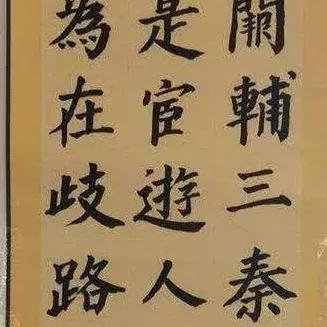 闕輔三秦
是宦遊人
為在歧路